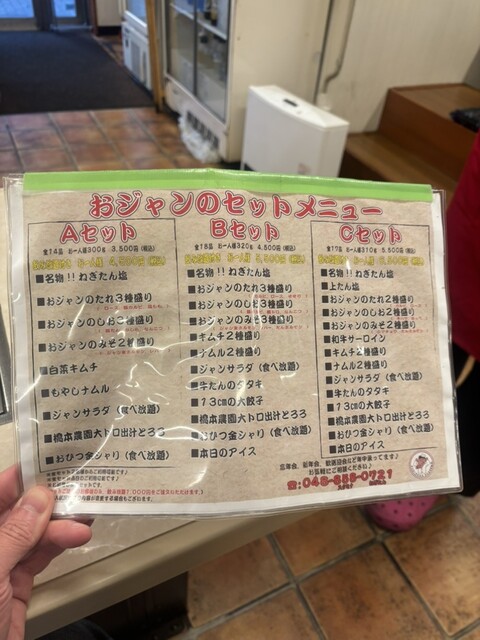 おジャンのセットメニュー
Aセット
全14品 お一人様300g 3,500円(税込)
■名物!!ねぎたん塩
■おジャンのたれ3種盛り
■おジャンのしお3種盛り
■おジャンのみそ2種盛り
■白菜キムチ
■もやしナムル
■ジャンサラダ(食べ放題)
■橋本農園大トロ出汁とろろ
■おひつ金シャリ(食べ放題)
Bセット
全18品 お一人様320g 4,500円(税込)
■名物!!ねぎたん塩
■おジャンのたれ3種盛り
■おジャンのしお3種盛り
■おジャンのみそ3種盛り
■キムチ2種盛り
■ナムル2種盛り
■ジャンサラダ(食べ放題)
■牛たんのタタキ
■13cmの大餃子
■橋本農園大トロ出汁とろろ
■おひつ金シャリ(食べ放題)
■本日のアイス
Cセット
全17品 お一人様310g 5,500円(税込)
■名物!!ねぎたん塩
■上たん塩
■おジャンのたれ2種盛り
■おジャンのしお2種盛り
■おジャンのみそ2種盛り
■和牛サーロイン
■キムチ2種盛り
■ナムル2種盛り
■ジャンサラダ(食べ放題)
■牛たんのタタキ
■13cmの大餃子
■橋本農園大トロ出汁とろろ
■おひつ金シャリ(食べ放題)
■本日のアイス
忘年会、新年会、歓送迎会など年中承ってます!
お気軽にご相談ください♪
☎:048-859-0721